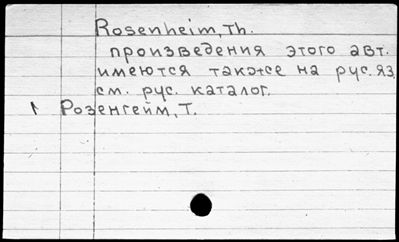 Rosenheim, Th.
произведения этого авт.
имеются также на рус. яз.
см. рус. каталог.
Розенгейм, Т.